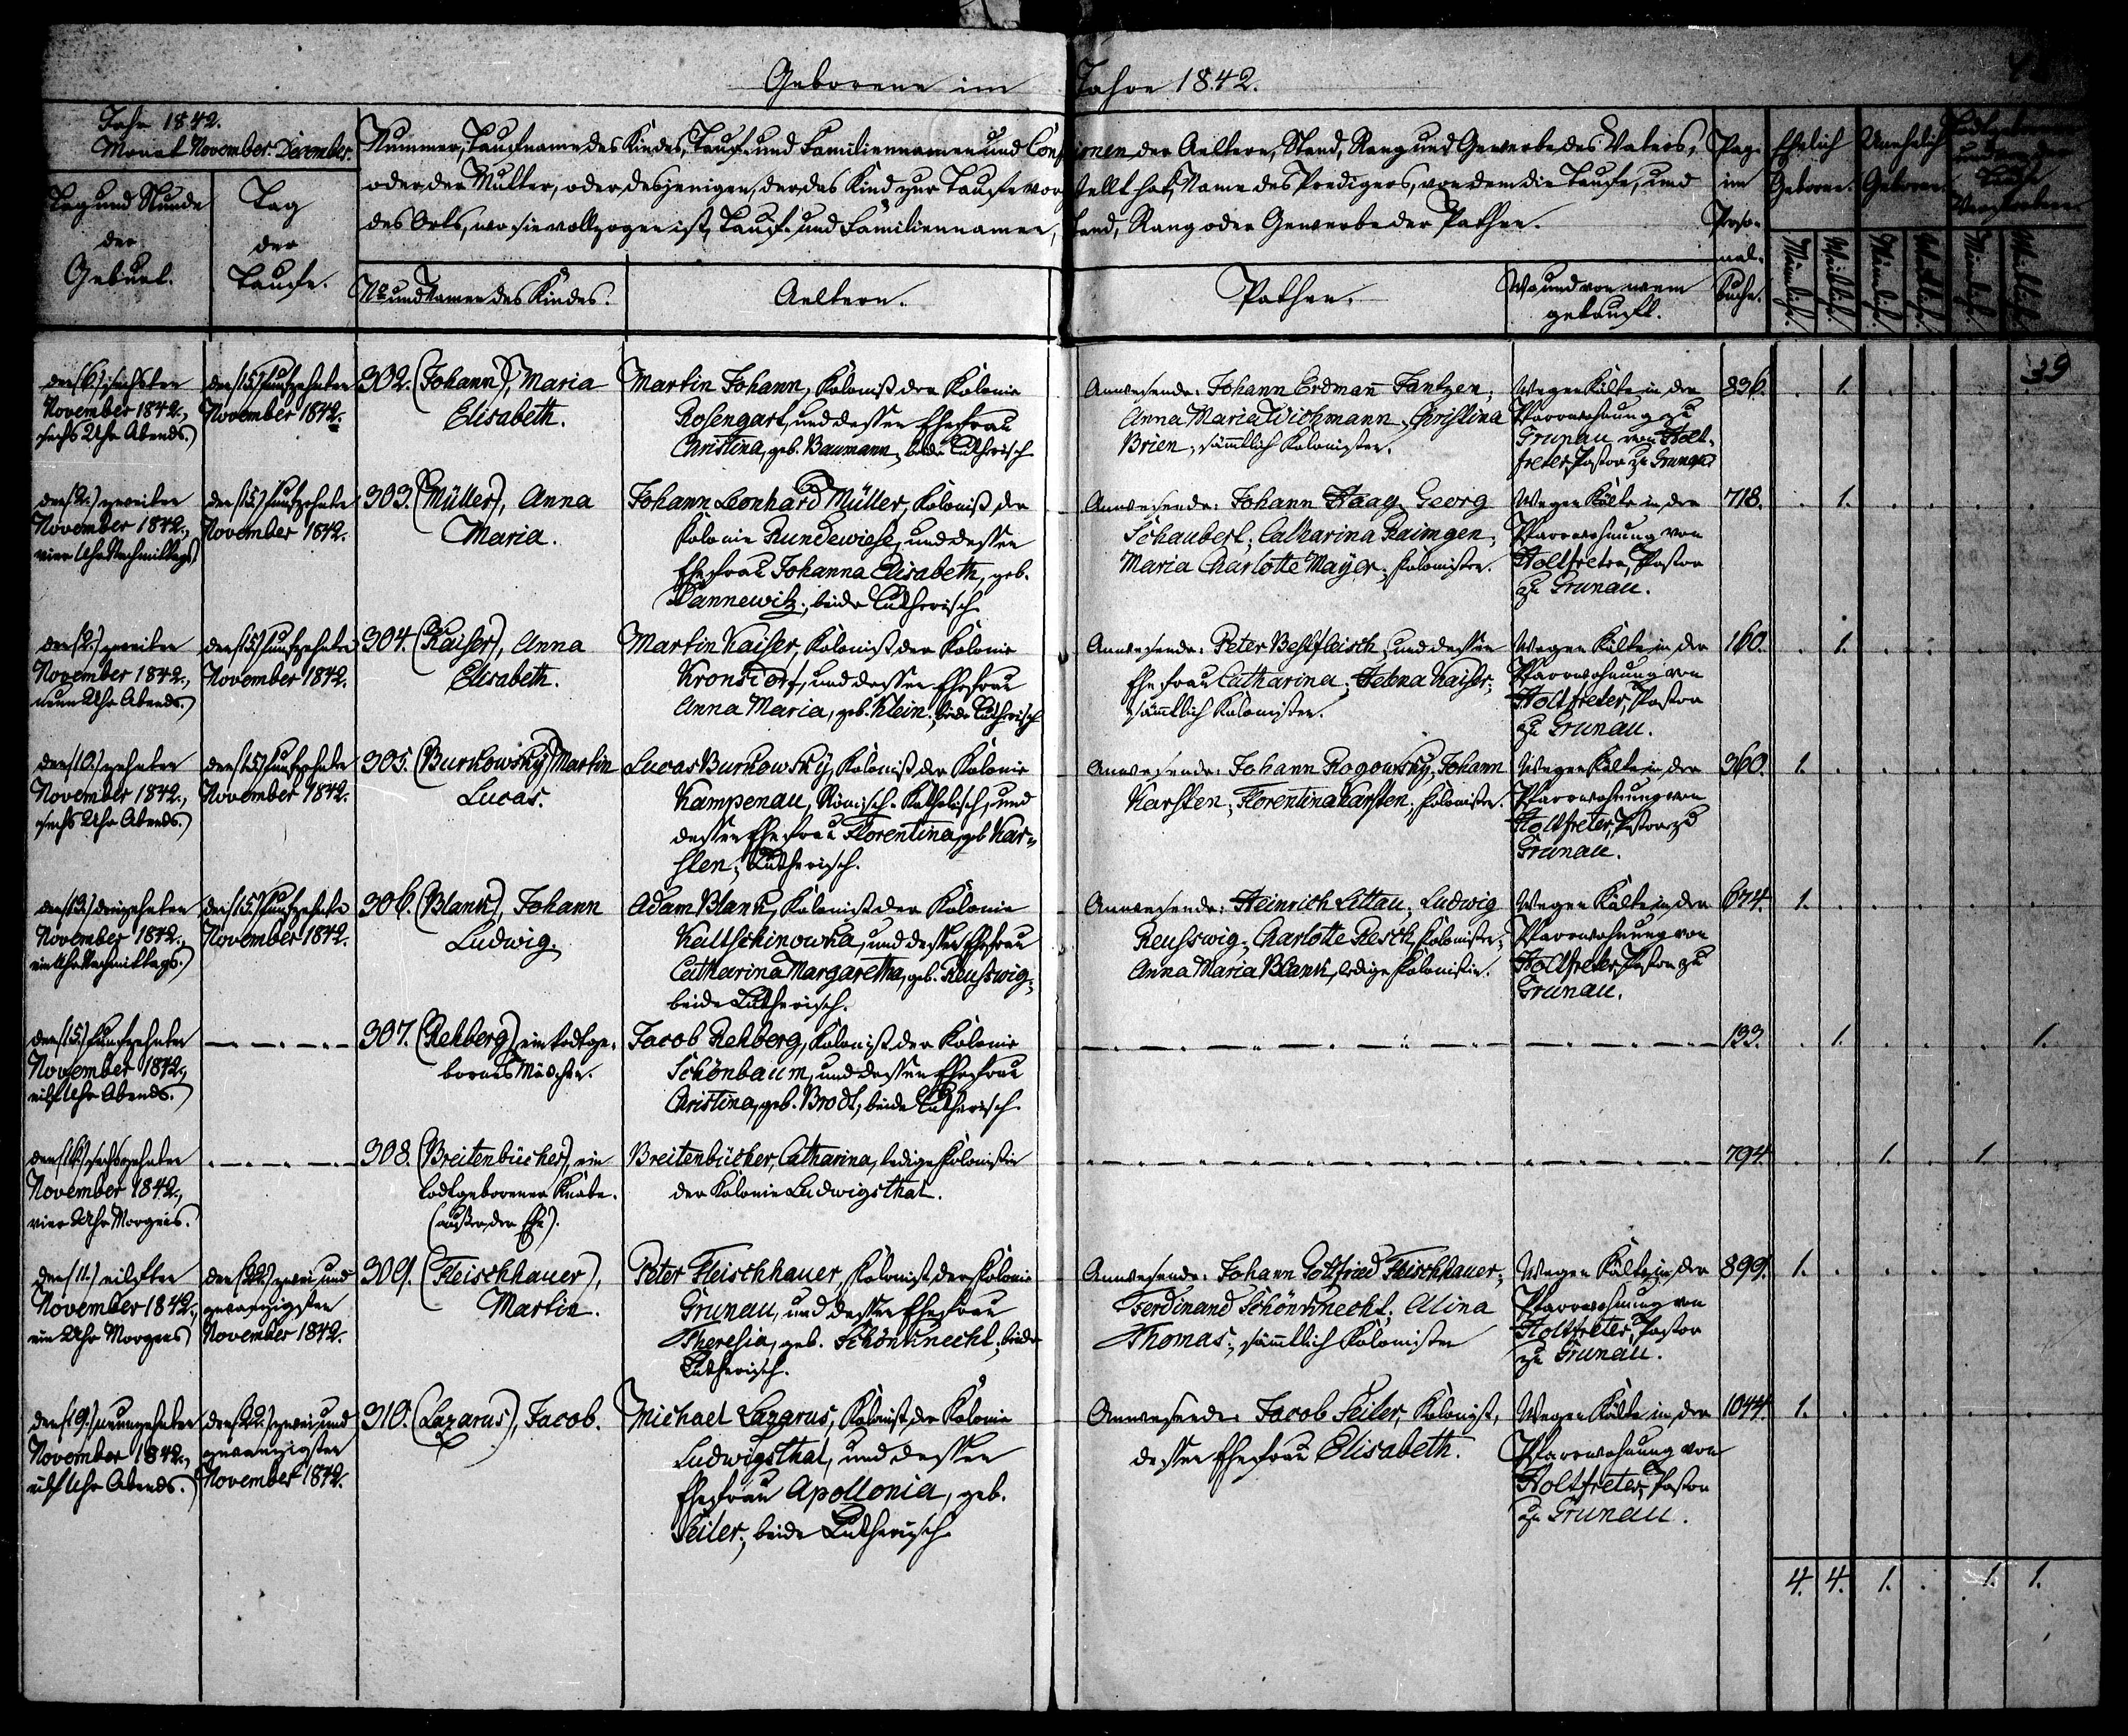 Geborene im Jahre 1842.
39
Jahr 1842.
Monat November. December.
Tag und Stunde
der
Geburt.
Tag
der
Taufe.
Nummer, Taufname des Kindes, Tauf- und Familiennamen und Confessionen der Aeltern, Stand, Rang und Gewerbe des Vaters,
oder der Mutter, oder desjenigen, der das Kind zur Taufe vorgestellt hat, Name des Predigers, von dem die Taufe, und
des Orts, wo sie vollzogen ist, Tauf- und Familiennamen, Stand, Rang oder Gewerbe der Pathen.
No und Namen des Kindes.
Aeltern.
Pathen.
Wo und von wem
getauft.
Pag.
im
Perso-
nal-
buche.
Ehelich
Geborene.
Unehelich
Geborene.
Taufe
Verstorbene.
Männlich.
Weiblich.
Männlich.
Weiblich.
Männlich.
Weiblich.
den (6.) sechsten
November 1842.,
sechs Uhr Abends.
den (15.) fünfzehnten
November 1842.
302. (Johann), Maria
Elisabeth.
Martin Johann, Kolonist der Kolonie
Rosengart, und dessen Ehefrau
Christina, geb. Baumann; beide Lutherisch.
Anwesende: Johann Erdmann Jantzen;
Anna Maria Wichmann; Christina
Brien; sämmtlich Kolonisten.
Wegen Kälte in der
Pfarrwohnung zu
Grunau von Holt-
freter, Pastor zu Grunau.
836. 1.
den (2.) zweiten
November 1842.,
vier Uhr Nachmittags.
den (15.) fünfzehnten
November 1842.
303. (Müller), Anna
Maria.
Johann Leonhard Müller, Kolonist der
Kolonie Rundewiese, und dessen
Ehefrau Johanna Elisabeth, geb.
Dannewitz; beide Lutherisch.
Anwesende: Johann Haag; Georg
Schaubert; Catharina Raimgen;
Maria Charlotte Mayer; Kolonisten.
Wegen Kälte in der
Pfarrwohnung von
Holtfreter, Pastor
zu Grunau.
718. 1.
den (2.) zweiten
November 1842.,
neun Uhr Abends.
den (15.) fünfzehnten
November 1842.
304. (Kaiser), Anna
Elisabeth.
Martin Kaiser, Kolonist der Kolonie
Kronsdorf, und dessen Ehefrau
Anna Maria, geb. Klein; beide Lutherisch.
Anwesende: Peter Bestfleisch, und dessen
Ehefrau Catharina; Helena Kaiser;
sämmtlich Kolonisten.
Wegen Kälte in der
Pfarrwohnung von
Holtfreter, Pastor
zu Grunau.
160. 1.
den (10.) zehnten
November 1842.,
sechs Uhr Abends.
den (15.) fünfzehnten
November 1842.
305. (Burkowsky) Martin
Lucas.
Lucas Burkowsky, Kolonist der Kolonie
Kampenau, Römisch-Katholisch, und
dessen Ehefrau Florentina, geb. Kar-
sten; Lutherisch.
Anwesende: Johann Rogowsky; Johann
Karsten; Florentina Karsten; Kolonisten.
Wegen Kälte in der
Pfarrwohnung von
Holtfreter, Pastor zu
Grunau.
360. 1.
den (13.) dreizehnten
November 1842.,
ein Uhr Nachmittags.
den (15.) fünfzehnten
November 1842.
306. (Blank), Johann
Ludwig.
Adam Blank, Kolonist der Kolonie
Kaltschinowka, und dessen Ehefrau
Catharina Margaretha, geb. Reusswig;
beide Lutherisch.
Anwesende: Heinrich Littau; Ludwig
Reusswig; Charlotte Resch, Kolonisten;
Anna Maria Blank, ledige Kolonistin.
Wegen Kälte in der
Pfarrwohnung von
Holtfreter, Pastor zu
Grunau.
674. 1.
den (15.) fünfzehnten
November 1842.,
eilf Uhr Abends.
307. (Rehberg) ein todtge-
bornes Mädchen.
Jacob Rehberg, Kolonist der Kolonie
Schönbaum, und dessen Ehefrau
Christina, geb. Brodt; beide Lutherisch.
133. 1. 1.
den (16.) sechszehnten
November 1842.,
vier Uhr Morgens.
308. (Breitenbücher), ein
todtgeborener Knabe.
(außer der Ehe).
Breitenbücher, Catharina, ledige Kolonistin
der Kolonie Ludwigsthal.
794. 1. 1.
den (11.) eilften
November 1842.,
ein Uhr Morgens
den (22.) zwei und
zwanzigsten
November 1842.
309. (Fleischhauer),
Martin.
Peter Fleischhauer, Kolonist der Kolonie
Grunau, und dessen Ehefrau
Theresia, geb. Schönknecht; beide
Lutherisch.
Anwesende: Johann Gottfried Fleischhauer;
Ferdinand Schönknecht; Alina
Thomas; sämmtlich Kolonisten
Wegen Kälte in der
Pfarrwohnung von
Holtfreter, Pastor
zu Grunau.
899. 1.
den (19.) neunzehnten
November 1842.,
eilf Uhr Abends.
den (22.) zwei und
zwanzigsten
November 1842.
310. (Lazarus), Jacob.
Michael Lazarus, Kolonist der Kolonie
Ludwigsthal, und dessen
Ehefrau Apollonia, geb.
Seiler; beide Lutherisch.
Anwesende: Jacob Seiler, Kolonist,
dessen Ehefrau Elisabeth.
Wegen Kälte in der
Pfarrwohnung von
Holtfreter, Pastor
zu Grunau.
1044. 1.
4. 4. 1. . 1. 1.